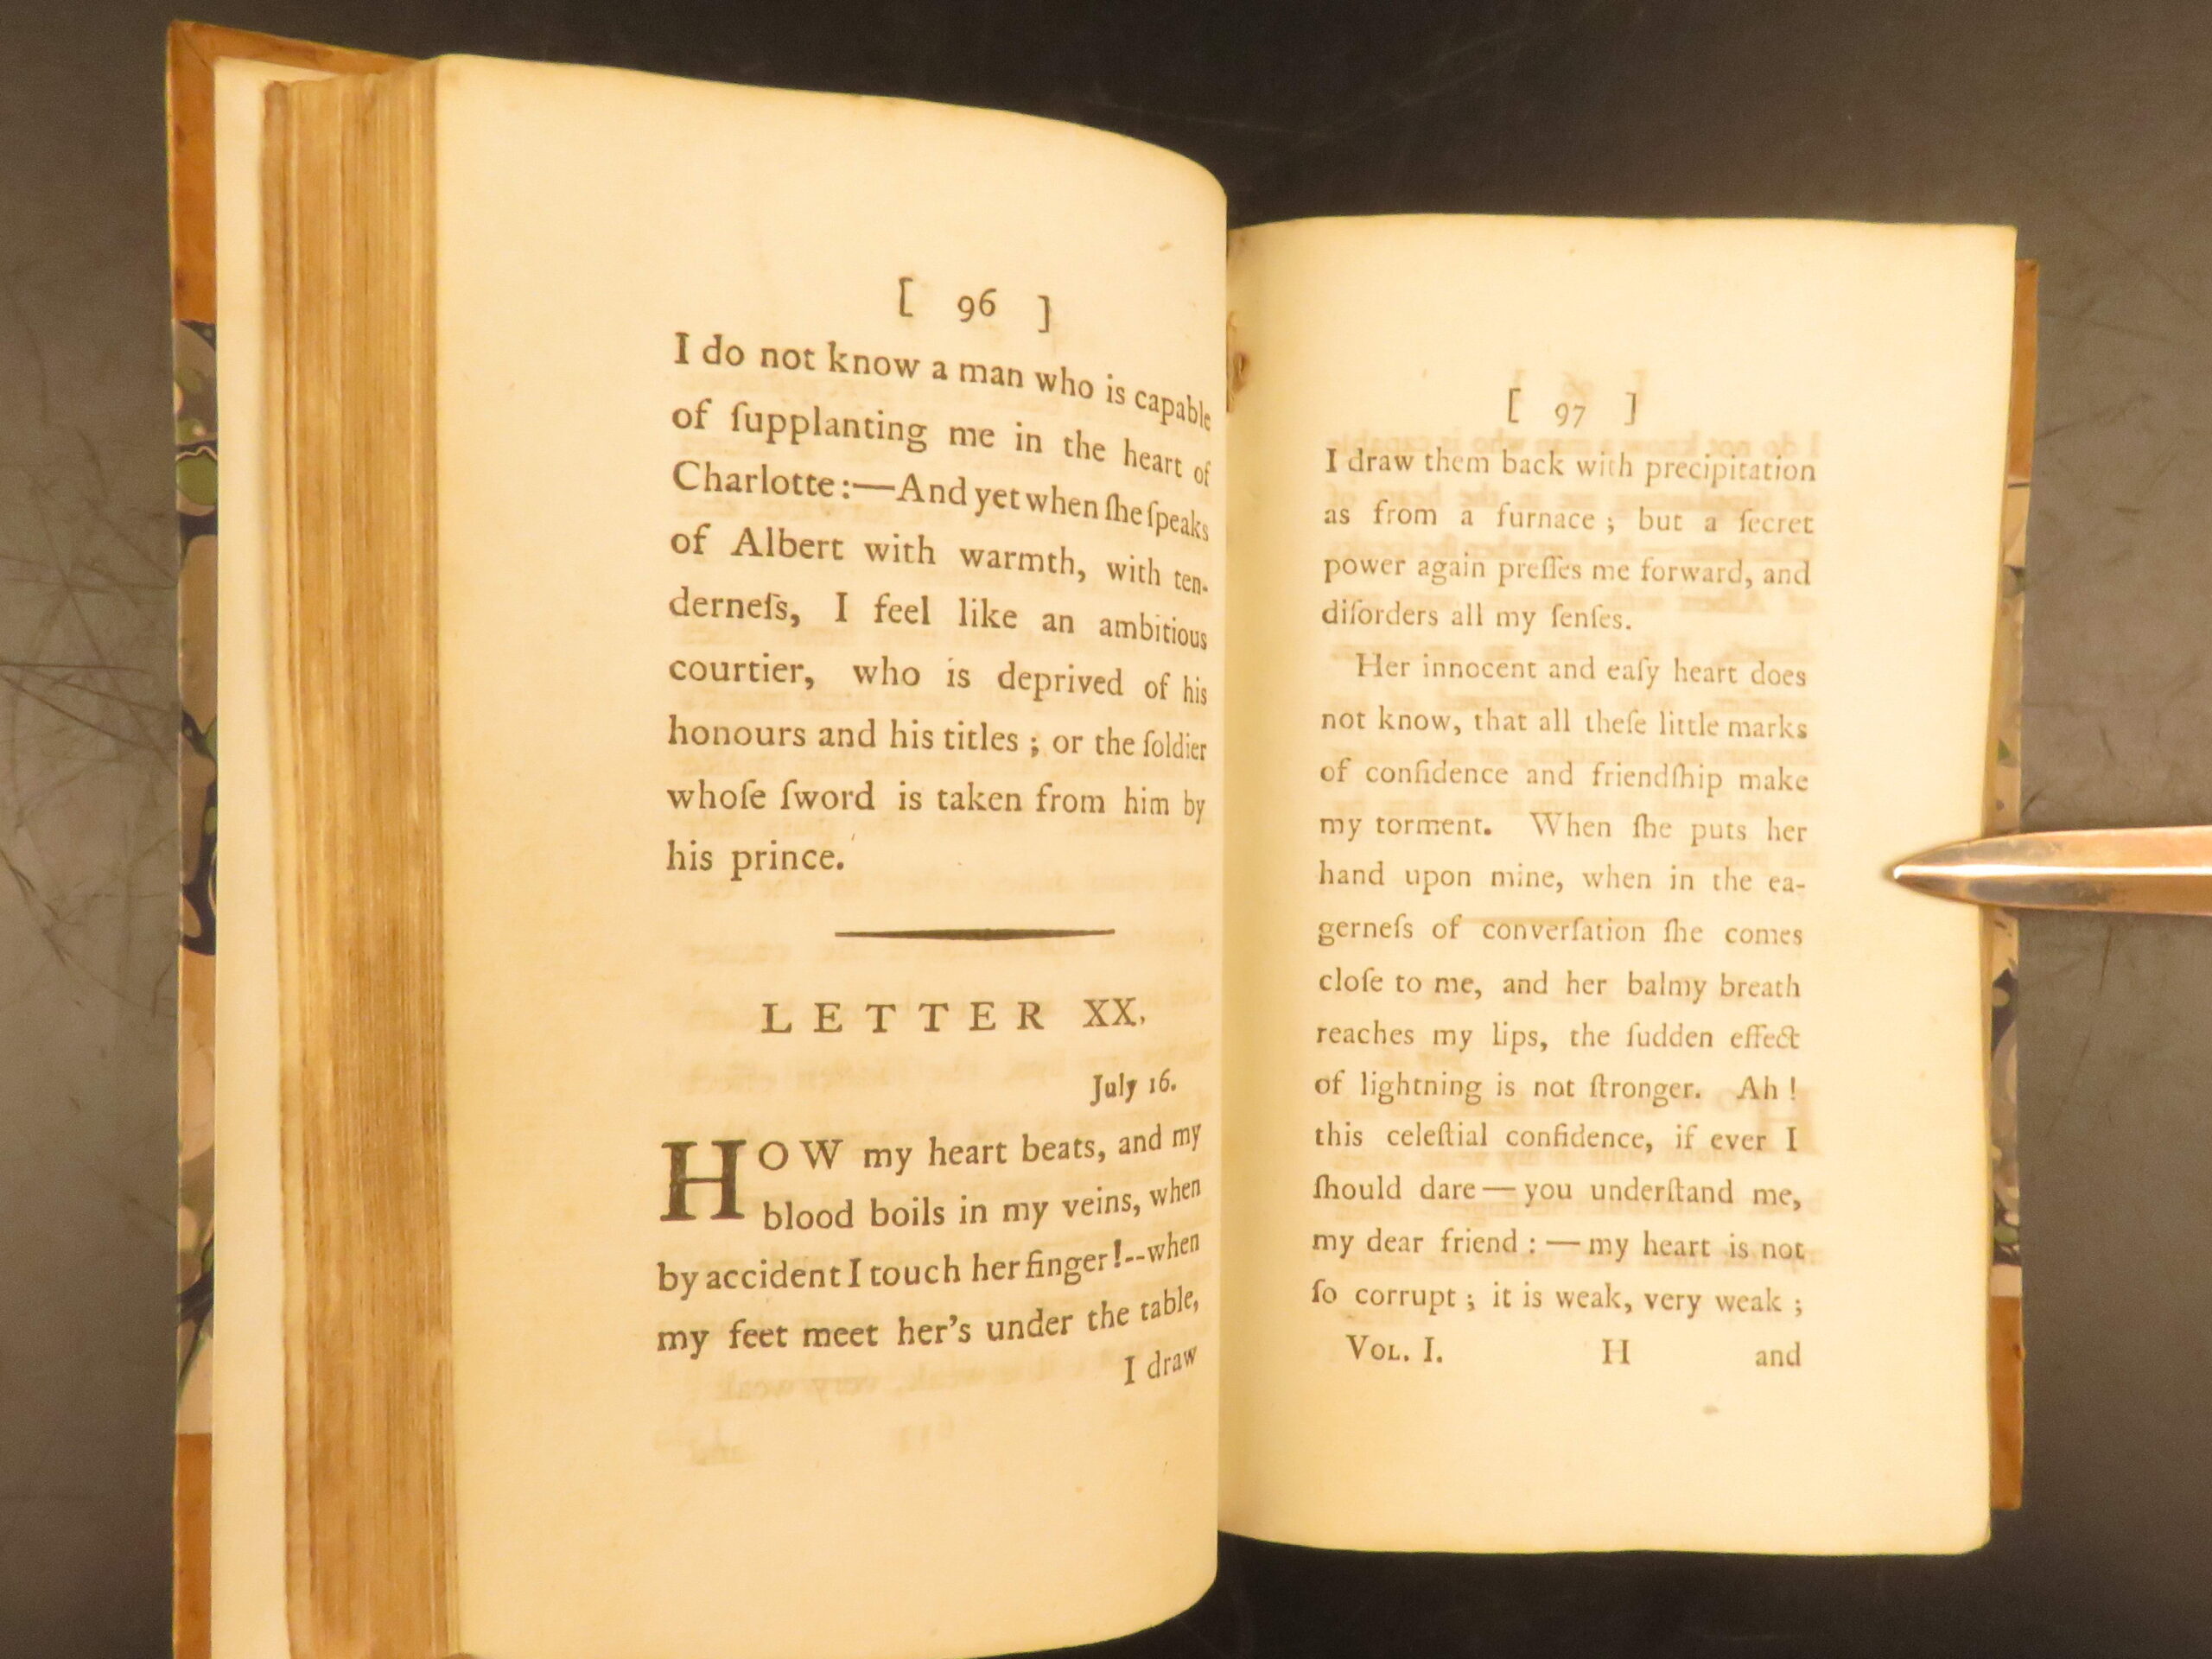 [ 96 ]
I do not know a man who is capable
of ſupplanting me in the heart of
Charlotte:—And yet when ſhe ſpeaks
of Albert with warmth, with ten-
derneſs, I feel like an ambitious
courtier, who is deprived of his
honours and his titles ; or the ſoldier
whoſe ſword is taken from him by
his prince.
LETTER XX.
July 16.
HOW my heart beats, and my
blood boils in my veins, when
by accident I touch her finger!--when
my feet meet her's under the table,
I draw
[ 97 ]
I draw them back with precipitation
as from a furnace ; but a ſecret
power again preſſes me forward, and
diſorders all my ſenſes.
Her innocent and eaſy heart does
not know, that all theſe little marks
of confidence and friendſhip make
my torment. When ſhe puts her
hand upon mine, when in the ea-
gerneſs of converſation ſhe comes
cloſe to me, and her balmy breath
reaches my lips, the ſudden effect
of lightning is not ſtronger. Ah !
this celeſtial confidence, if ever I
ſhould dare — you underſtand me,
my dear friend : — my heart is not
ſo corrupt ; it is weak, very weak ;
VOL. I. H and